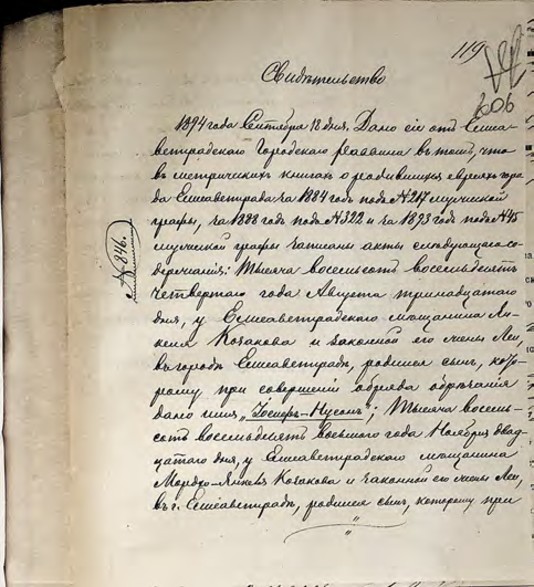 119
606
Свидѣтельство
1894 года Сентября 18 дня. Дано сіе отъ Елиса-
ветградскаго Городскаго Раввина въ томъ, что
въ метрическихъ книгахъ о родившихся евреяхъ горо-
да Елисаветграда за 1884 годъ подъ №217 мужеской
графы, за 1888 годъ подъ №322 и за 1893 годъ подъ №45
мужеской графы записаны акты слѣдующаго со-
держанія: Тысяча восемьсотъ восемьдесятъ
№ 846.
четвертаго года Августа тринадцатаго
дня, у Елисаветградскаго мѣщанина Ян-
келя Кочакова и законной его жены Леи,
въ городѣ Елисаветградѣ, родился сынъ, кото-
рому при совершеніи обряда обрѣзанія
дано имя „Іосифъ-Нусонъ"; Тысяча восемь-
сотъ восемьдесятъ восьмого года Ноября двад-
цатаго дня, у Елисаветградскаго мѣщанина
Мордко-Янкеля Кочакова и законной его жены Леи,
въ г. Елисаветградѣ, родился сынъ, которому при